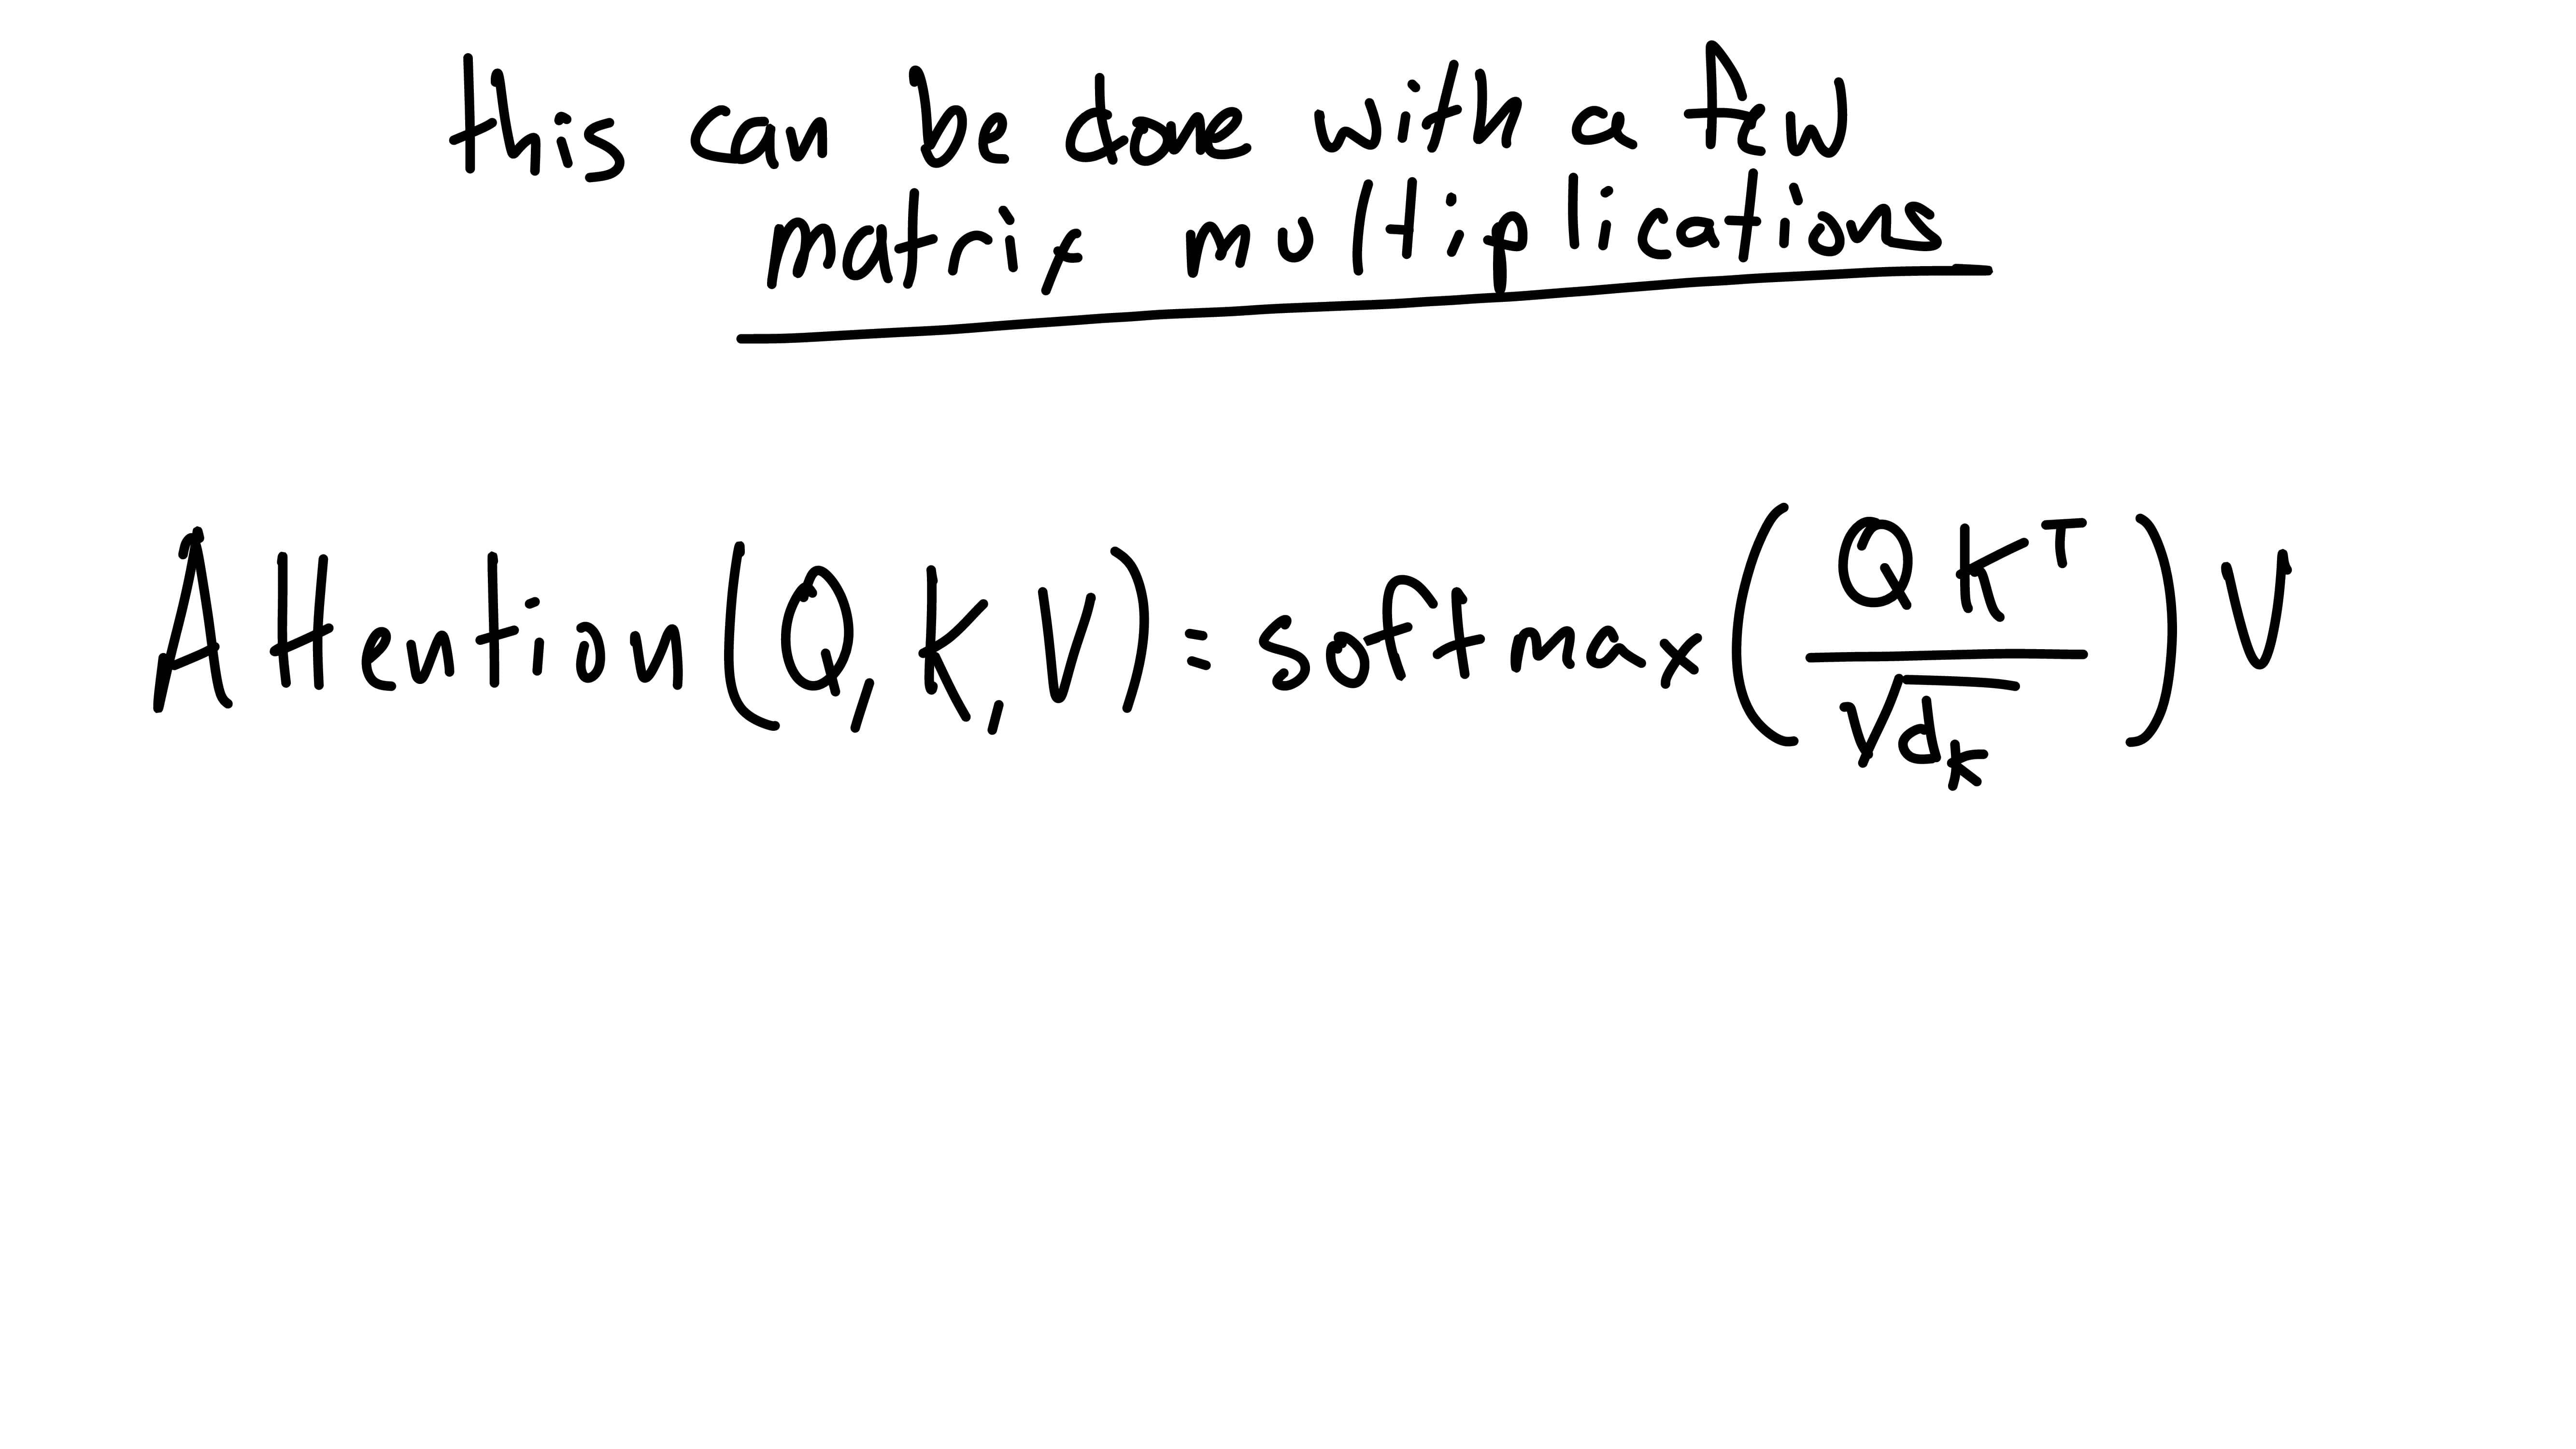 this can be done with a few
matrix multiplications
Attention(Q,K,V)=softmax(QKᵀ/√dₖ)V